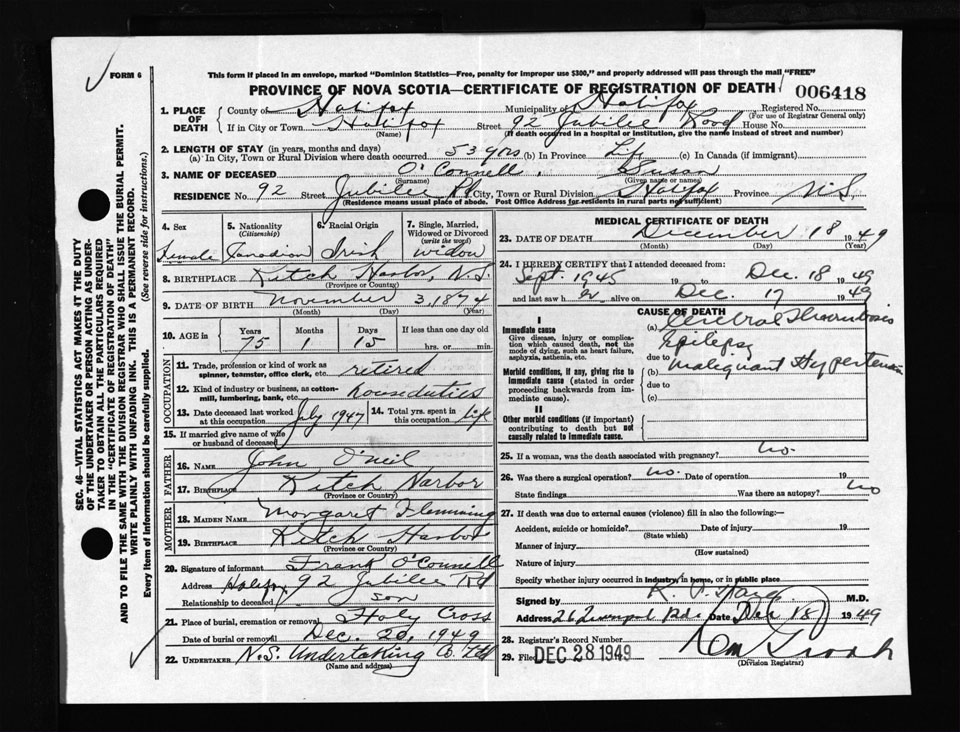 FORM 6
This form if placed in an envelope, marked "Dominion Statistics—Free, penalty for improper use $300," and properly addressed will pass through the mail "FREE"
PROVINCE OF NOVA SCOTIA—CERTIFICATE OF REGISTRATION OF DEATH
006418
1. PLACE OF DEATH
County of Halifax Municipality of Halifax Registered No.
(For use of Registrar General only)
If in City or Town Halifax Street 92 Jubilee Road House No.
(Name) (If death occurred in a hospital or institution, give the name instead of street and number)
2. LENGTH OF STAY (in years, months and days)
(a) In City, Town or Rural Division where death occurred 53 yrs (b) In Province Life (c) In Canada (if immigrant)
3. NAME OF DECEASED O'Connell, Susan
(Surname) (Given name or names)
RESIDENCE No. 92 Street Jubilee Rd City, Town or Rural Division Halifax Province N.S.
(Residence means usual place of abode. Post Office Address for residents in rural parts not sufficient)
4. Sex 5. Nationality (Citizenship) 6. Racial Origin 7. Single, Married, Widowed or Divorced (write the word)
Female Canadian Irish widow
8. BIRTHPLACE Ketch Harbor, N.S.
(Province or Country)
9. DATE OF BIRTH November 3, 1874
(Month) (Day) (Year)
10. AGE in Years Months Days If less than one day
75 1 15 hrs. or min.
OCCUPATION
11. Trade, profession or kind of work as spinner, teamster, office clerk, etc. retired
12. Kind of industry or business, as cotton-mill, lumbering, bank, etc. houseduties
13. Date deceased last worked at this occupation July 1947 14. Total yrs. spent in this occupation life
15. If married give name of wife or husband of deceased
FATHER
16. NAME John O'Neil
17. BIRTHPLACE Ketch Harbor
(Province or Country)
MOTHER
18. MAIDEN NAME Margaret Flemming
19. BIRTHPLACE Ketch Harbor
(Province or Country)
20. Signature of informant Frank O'Connell
Address Halifax, 92 Jubilee Rd
Relationship to deceased son
21. Place of burial, cremation or removal Holy Cross
Date of burial or removal Dec. 20, 1949
22. UNDERTAKER N.S. Undertaking Co. Ltd
(Name and address)
MEDICAL CERTIFICATE OF DEATH
23. DATE OF DEATH December 18 1949
(Month) (Day) (Year)
24. I HEREBY CERTIFY that I attended deceased from:
Sept. 1945 19 to Dec. 18 1949
and last saw her alive on Dec. 17 1949
CAUSE OF DEATH
I
Immediate cause
Give disease, injury or complication which caused death, not the mode of dying, such as heart failure, asphyxia, asthenia, etc.
(a) Cerebral Thrombosis
Epilepsy
due to Malignant Hypertension
Morbid conditions, if any, giving rise to immediate cause (stated in order proceeding backwards from immediate cause).
(b)
due to
(c)
II
Other morbid conditions (if important) contributing to death but not causally related to immediate cause.
25. If a woman, was the death associated with pregnancy? no.
26. Was there a surgical operation? no. Date of operation 19
State findings Was there an autopsy? no
27. If death was due to external causes (violence) fill in also the following:—
Accident, suicide or homicide? Date of injury 19
(State which)
Manner of injury
(How sustained)
Nature of injury
Specify whether injury occurred in industry, in home, or in public place
Signed by M.D.
Address 26 Date Dec 18 1949
28. Registrar's Record Number
29. Filed DEC 28 1949
(Division Registrar)
SEC. 46—VITAL STATISTICS ACT MAKES IT THE DUTY
OF THE UNDERTAKER OR PERSON ACTING AS UNDER-
TAKER TO OBTAIN ALL THE PARTICULARS REQUIRED
IN THE "CERTIFICATE OF REGISTRATION OF DEATH"
AND TO FILE THE SAME WITH THE DIVISION REGISTRAR WHO SHALL ISSUE THE BURIAL PERMIT.
WRITE PLAINLY WITH UNFADING INK. THIS IS A PERMANENT RECORD.
Every item of information should be carefully supplied. (See reverse side for instructions.)